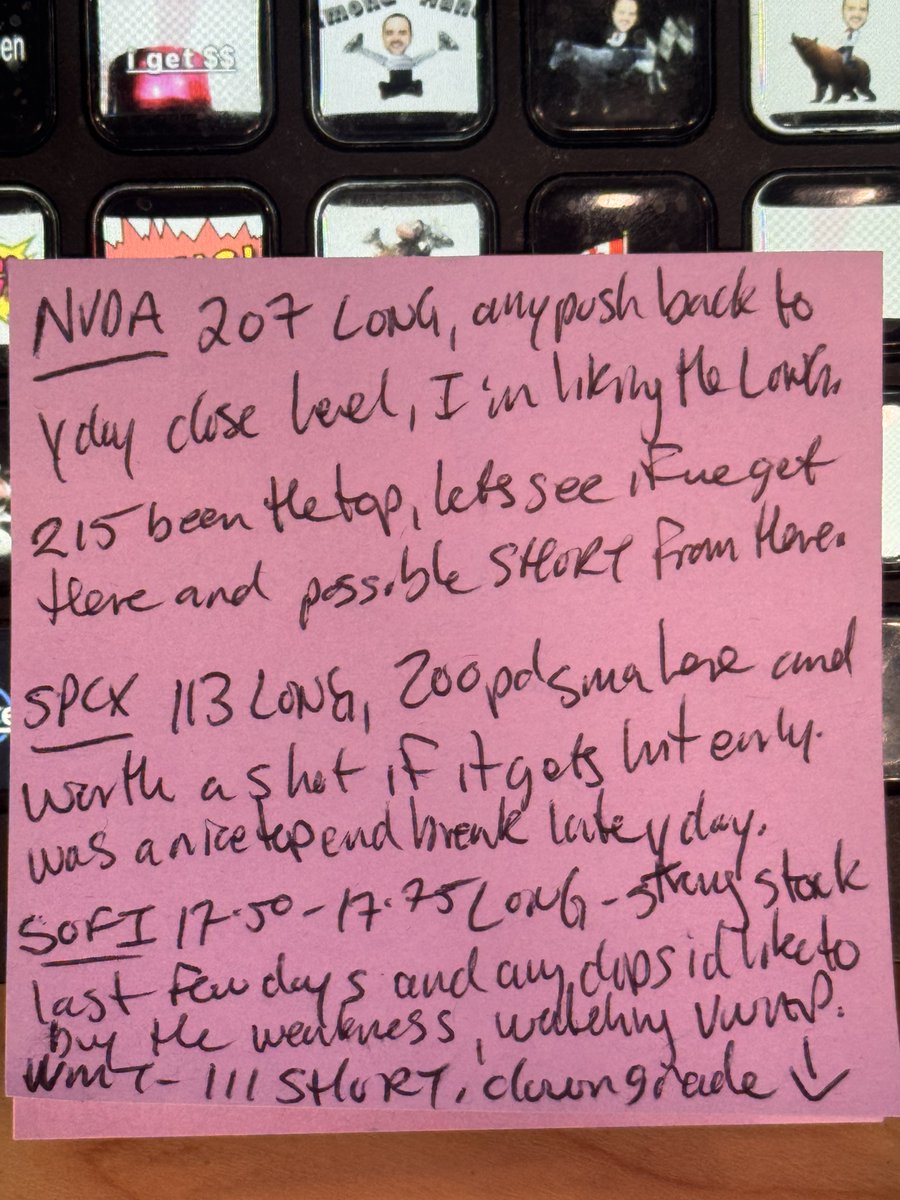 en
i get $$
NVDA 207 LONG, any push back to
yday close level, I'm liking the LONG.
215 been the top, lets see if we get
there and possible SHORT from there.
SPCX 113 LONG, 200pd sma here and
worth a shot if it gets hit early.
was a nice top end break late yday.
SOFI 17.50-17.75 LONG - strong stock
last few days and any dips id like to
buy the weakness, watching VWAP.
WMT- 111 SHORT, downgrade ↓